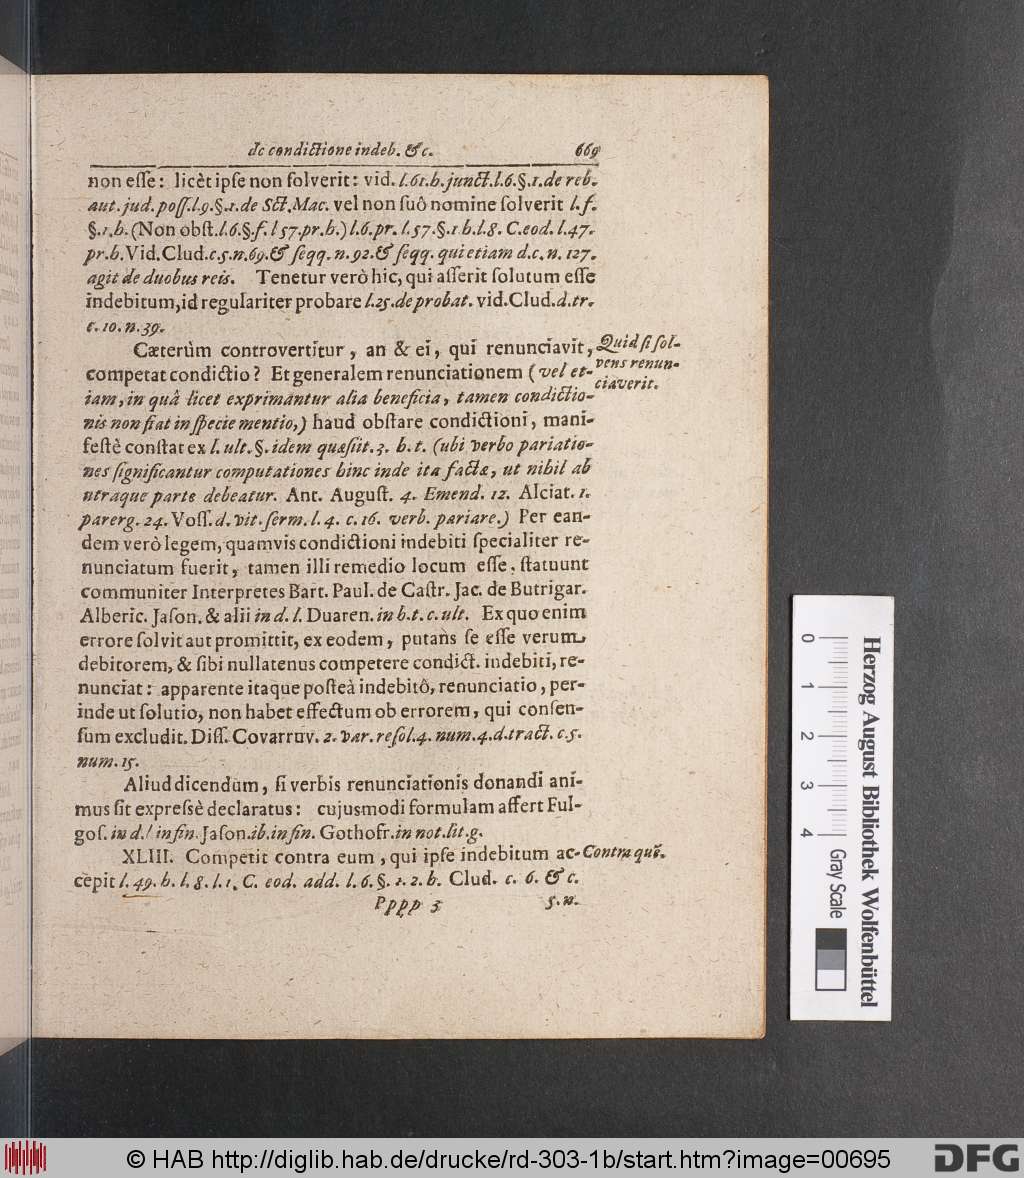 de condictione indeb. &c. 669
non esse: licèt ipse non solverit: vid. l.61.h. junct. l.6.§.1. de reb.
aut. jud. poss. l.9.§.1. de Sct. Mac. vel non suô nomine solverit l. f.
§.1.h. (Non obst. l.6.§.f. l 57. pr. h.) l.6. pr. l.57.§.1 h.l.8. C. eod. l.47.
pr. h. Vid. Clud. c 5. n. 69. & seqq. n. 92. & seqq. qui etiam d. c. n. 127.
agit de duobus reis. Tenetur verò hic, qui asserit solutum esse
indebitum, id regulariter probare l.25. de probat. vid. Clud. d. tr.
c. 10. n. 39.
Cæterùm controvertitur, an & ei, qui renunciavit,
competat condictio? Et generalem renunciationem (vel et-
iam, in quâ licet exprimantur alia beneficia, tamen condictio-
nis non fiat in specie mentio,) haud obstare condictioni, mani-
festè constat ex l. ult. §. idem quæsiit. 3. h. t. (ubi verbo pariatio-
nes significantur computationes hinc inde ita factæ, ut nihil ab
utraque parte debeatur. Ant. August. 4. Emend. 12. Alciat. 1.
parerg. 24. Voss. d. vit. serm. l. 4. c. 16. verb. pariare.) Per ean-
dem verò legem, quamvis condictioni indebiti specialiter re-
nunciatum fuerit, tamen illi remedio locum esse, statuunt
communiter Interpretes Bart. Paul. de Castr. Jac. de Butrigar.
Alberic. Jason. & alii in d. l. Duaren. in h. t. c. ult. Ex quo enim
errore solvit aut promittit, ex eodem, putans se esse verum
debitorem, & sibi nullatenus competere condict. indebiti, re-
nunciat: apparente itaque posteà indebitô, renunciatio, per-
inde ut solutio, non habet effectum ob errorem, qui consen-
sum excludit. Diss. Covarruv. 2. var. resol. 4. num. 4. d. tract. c. 5.
num. 15.
Aliud dicendum, si verbis renunciationis donandi ani-
mus sit expressè declaratus: cujusmodi formulam affert Ful-
gos. in d. l in fin. Jason. ib. in fin. Gothofr. in not. lit. g.
XLIII. Competit contra eum, qui ipse indebitum ac-
cepit l. 49. h. l. 8. l. 1. C. eod. add. l. 6. §. 1. 2. h. Clud. c. 6. & c.
Pppp 3 5. n.
Quid si sol-
vens renun-
ciaverit.
Contra quē.
0 1 2 3 4
Gray Scale
Herzog August Bibliothek Wolfenbüttel
© HAB http://diglib.hab.de/drucke/rd-303-1b/start.htm?image=00695
DFG